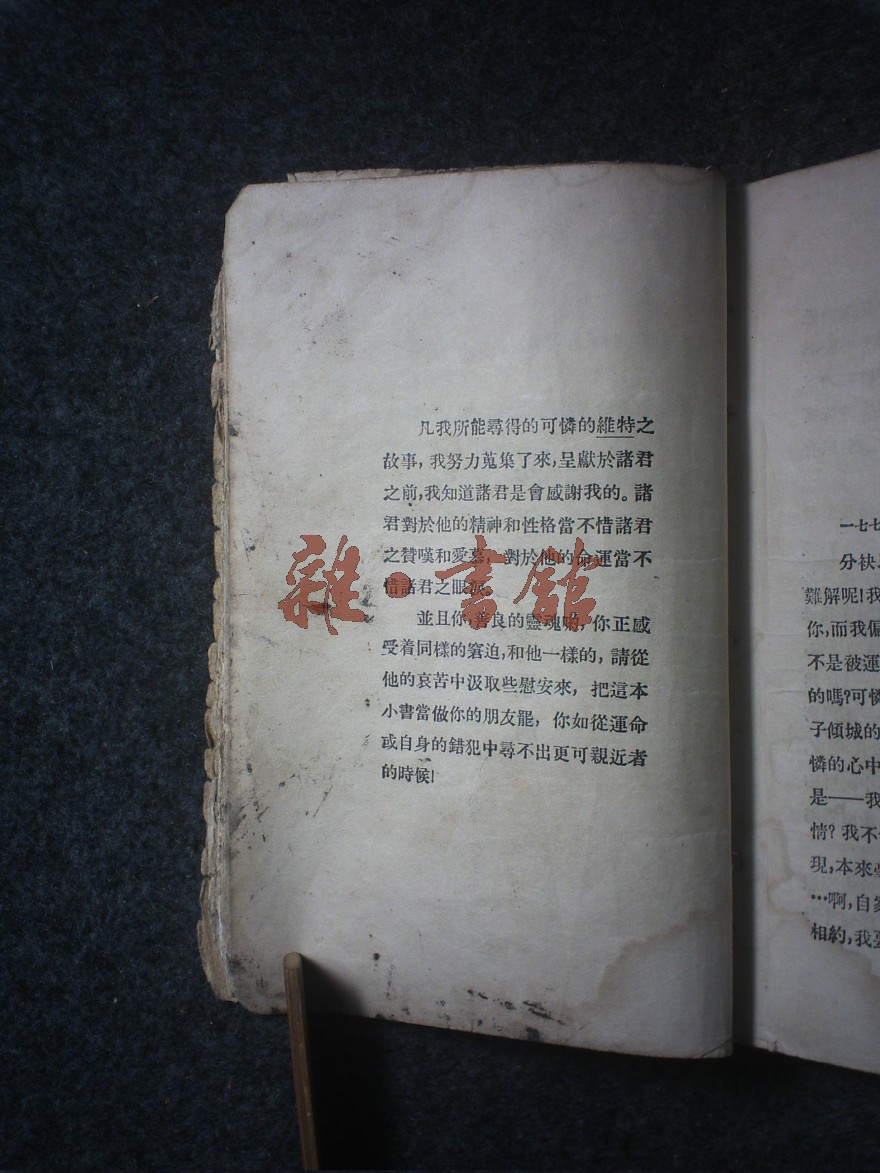 凡我所能尋得的可憐的維特之
故事，我努力蒐集了來，呈獻於諸君
之前，我知道諸君是會感謝我的。諸
君對於他的精神和性格當不惜諸君
之贊嘆和愛慕，對於他的命運當不
惜諸君之眼淚。
並且你，善良的靈魂喲，你正感
受着同樣的窘迫，和他一樣的，請從
他的哀苦中汲取些慰安來，把這本
小書當做你的朋友罷，你如從運命
或自身的錯犯中尋不出更可親近者
的時候！
雜·書館
一七七
分袂
難解呢！我
你，而我偏
不是被運
的嗎？可憐
子傾城的
憐的心中
是——我
情？我不
現，本來
…啊，自家
相約，我要